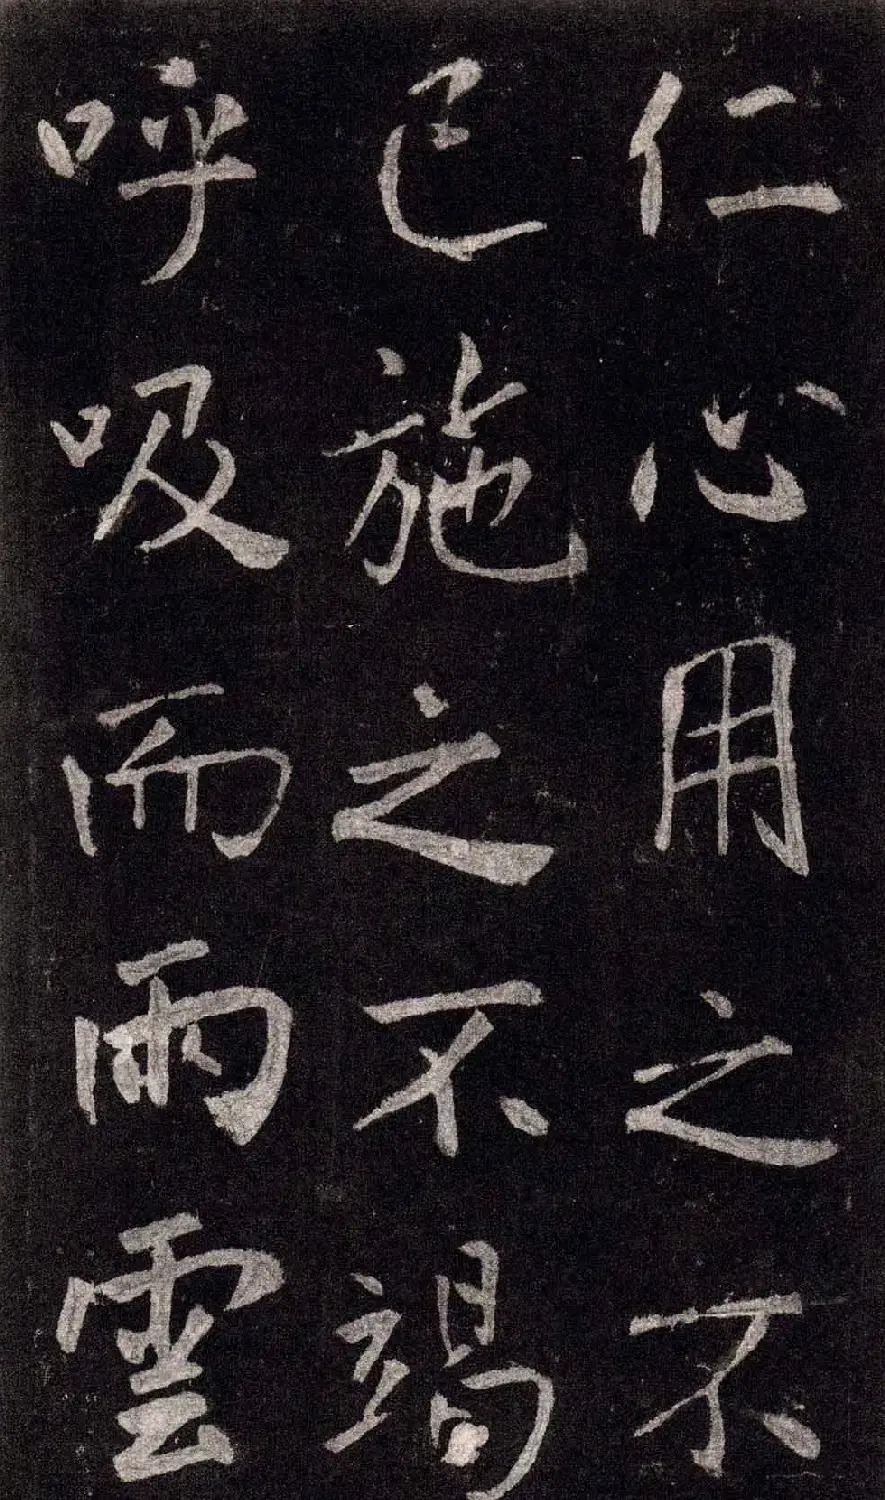 仁心用之不
已施之不竭
呼吸而雨雲